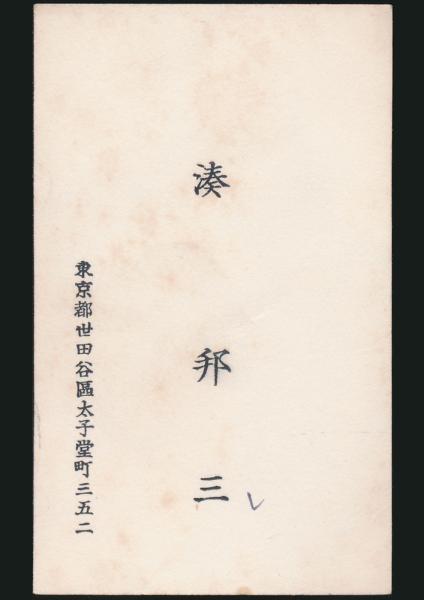 湊邦三
東京都世田谷區太子堂町三五二